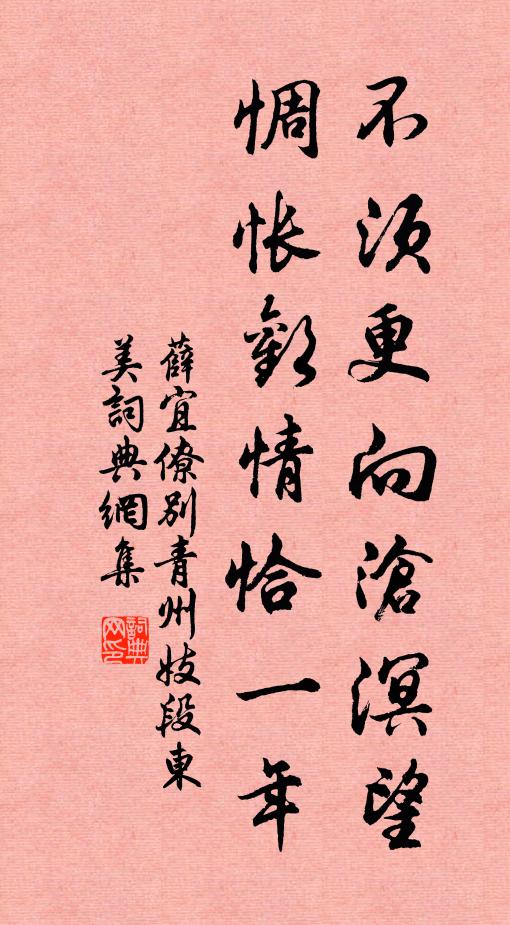 不須更向滄溟望
惆悵歡情恰一年
薛宜僚別青州妓段東
美詞典網集
詞典
网印